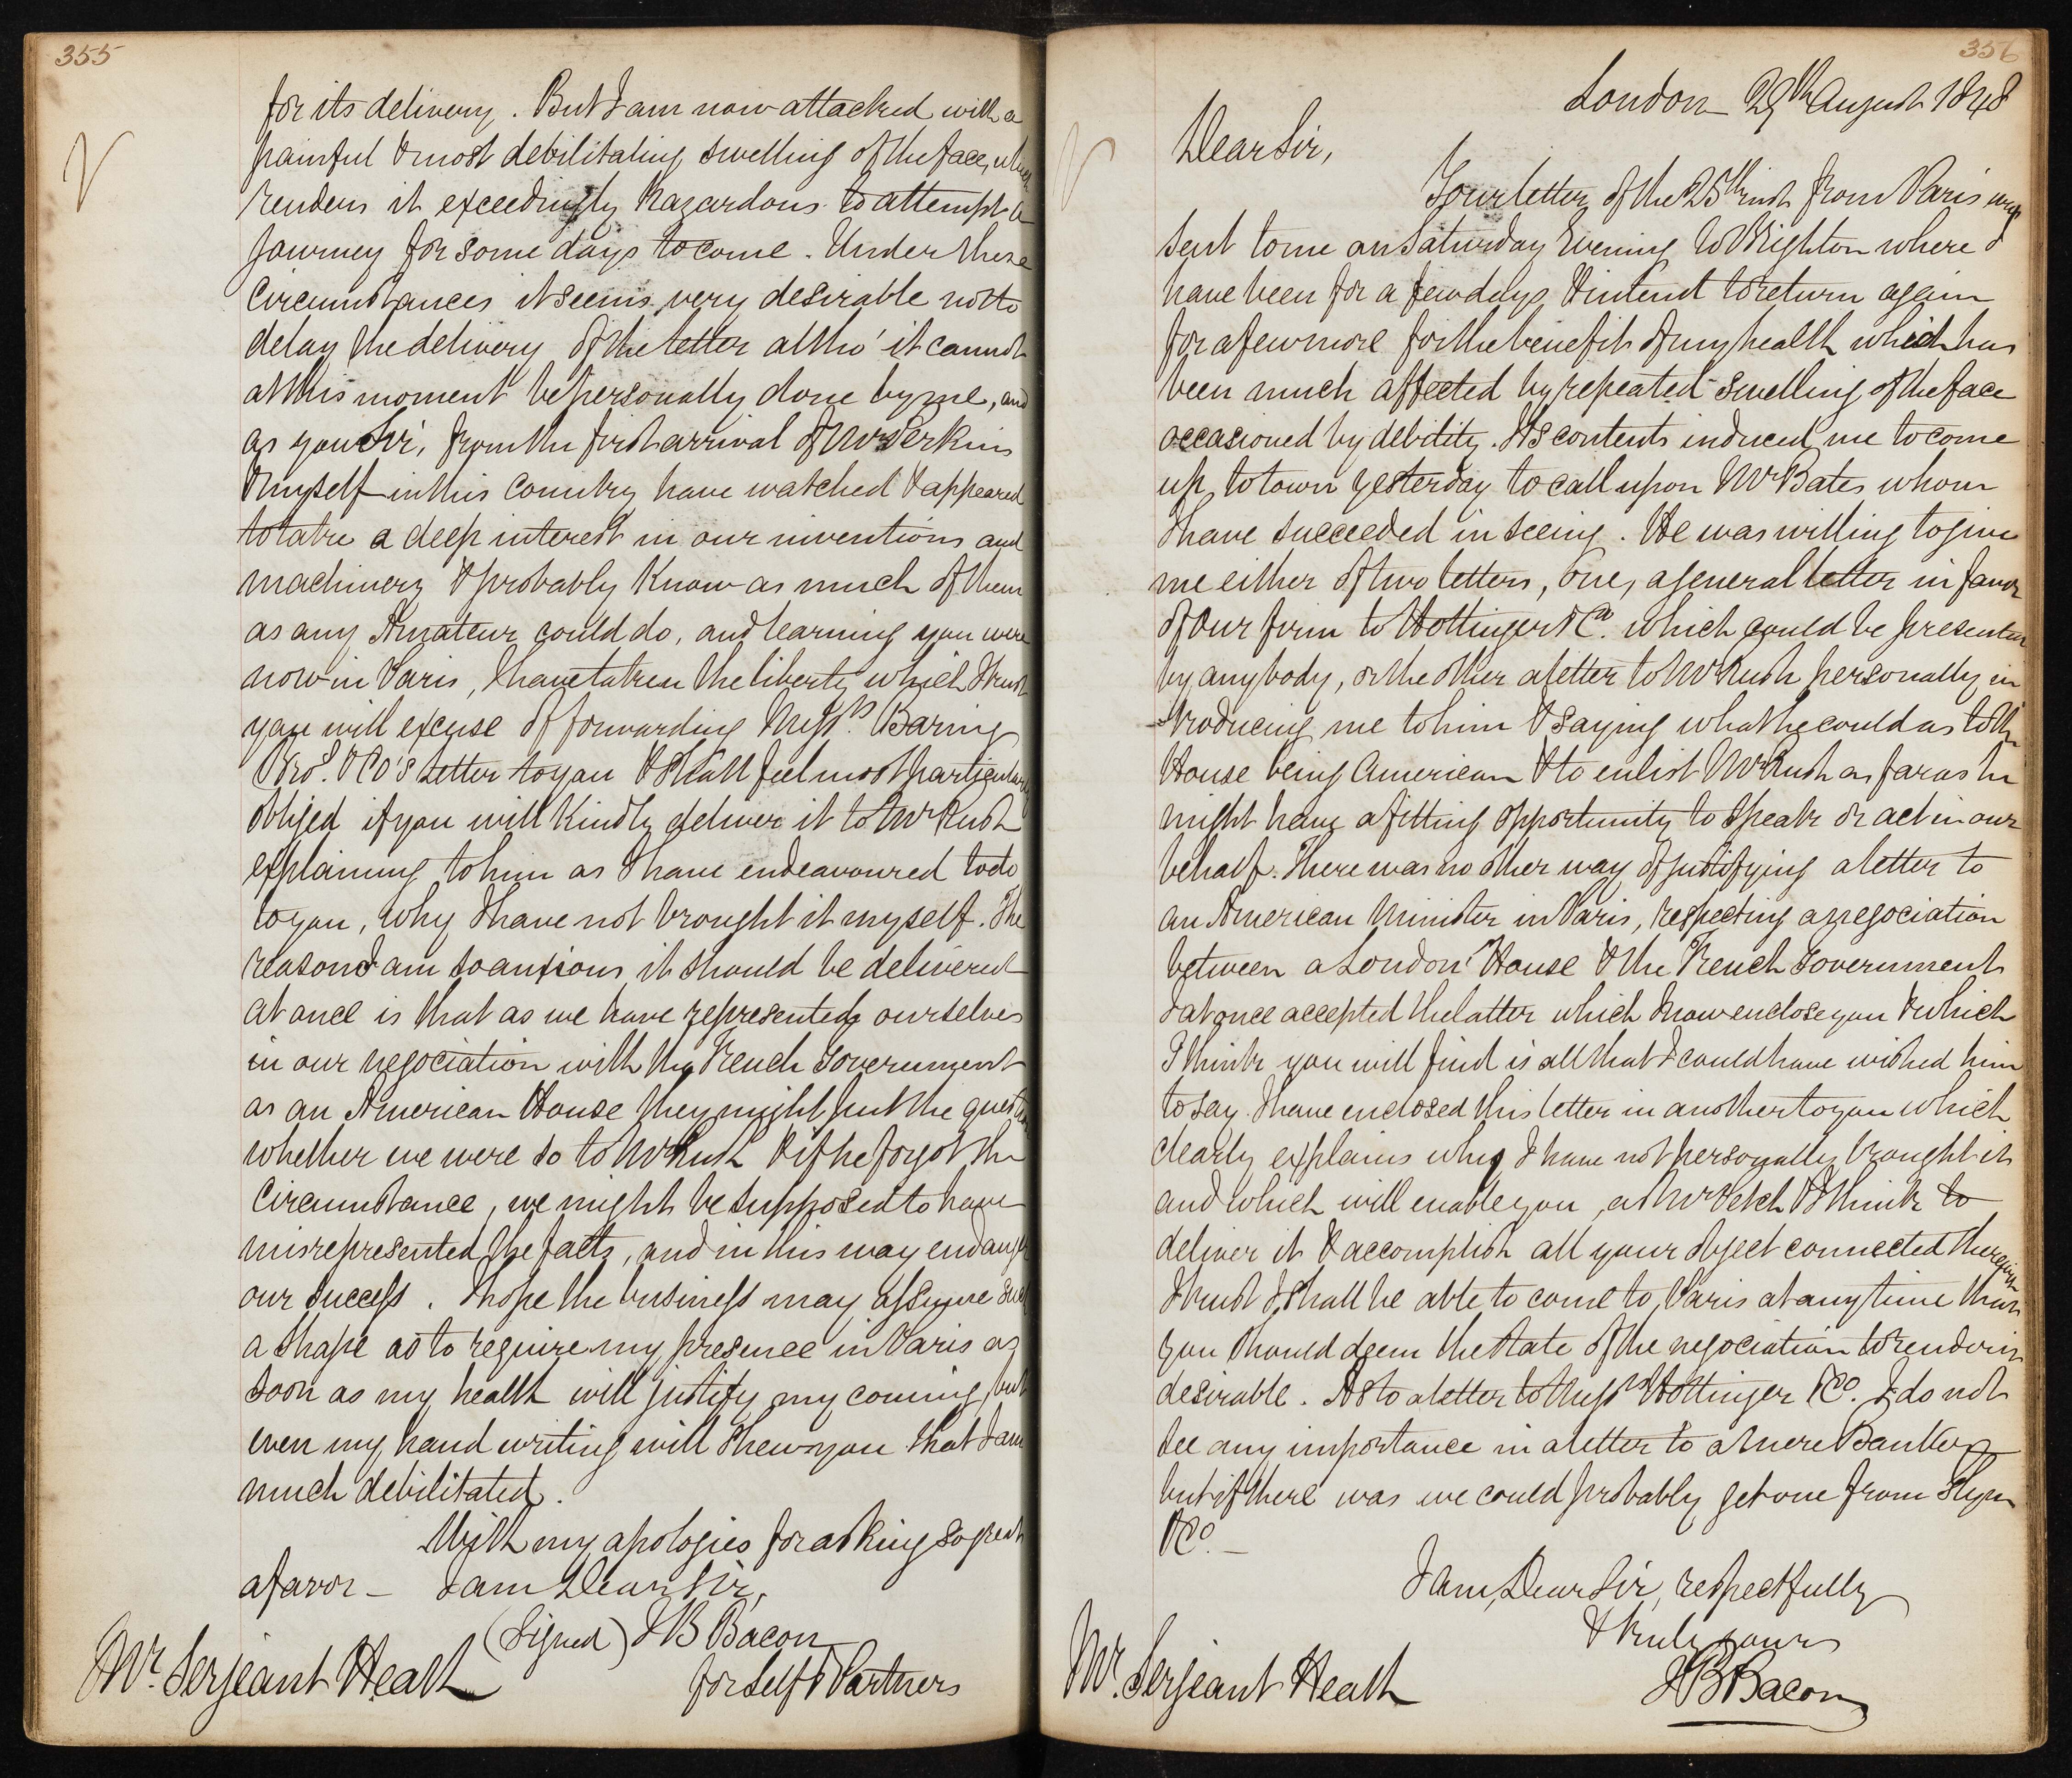 355
for its delivery. But I am now attacked with a
painful & most debilitating swelling of the face, which
renders it exceedingly hazardous to attempt a
journey for some days to come. Under these
circumstances it seems very desirable not to
delay the delivery of the letter altho' it cannot
at this moment be personally done by me, and
as you Sir, from the first arrival of Mr Perkins
& myself in this Country have watched & appeared
to take a deep interest in our inventions and
machinery & probably know as much of them
as any Amateur could do, and learning you were
now in Paris, I have taken the liberty which I trust
you will excuse of forwarding Messrs. Baring
Bros. & Co's Letter to you & shall feel most particularly
obliged if you will kindly deliver it to Mr Rush
explaining to him as I have endeavoured to do
to you, why I have not brought it myself. The
reason I am so anxious it should be delivered
at once is that as we have represented ourselves
in our negociation with the French Government
as an American House they might put the question
whether we were so to Mr Rush & if he forgot the
circumstance, we might be supposed to have
misrepresented the facts, and in this way endanger
our success. I hope the business may assume such
a shape as to require my presence in Paris as
soon as my health will justify my coming, but
even my hand writing will shew you that I am
much debilitated.
With my apologies for asking so great
a favor — I am Dear Sir,
(Signed) J B Bacon
for Self & Partners
Mr. Serjeant Heath
356
London 29th August 1848
Dear Sir,
Your letter of the 25th inst from Paris was
sent to me on Saturday Evening to Brighton where I
have been for a few days & intend to return again
for a few more for the benefit of my health which has
been much affected by repeated swelling of the face
occasioned by debility. Its contents induced me to come
up to town yesterday to call upon Mr Bates whom
I have succeeded in seeing. He was willing to give
me either of two letters, one, a general letter in favor
of our firm to Hottinger & Co. which could be presented
by anybody, or the other a letter to Mr Rush personally in
-troducing me to him & saying what he could as to the
House being American & to enlist Mr Rush as far as he
might have a fitting opportunity to speak or act in our
behalf. There was no other way of justifying a letter to
an American Minister in Paris, respecting a negociation
between a London House & the French Government
I at once accepted the latter which I now enclose you & which
I think you will find is all that I could have wished him
to say. I have enclosed this letter in another to you which
clearly explains why I have not personally brought it
and which will enable you, as Mr I think to
deliver it & accomplish all your object connected therewith
I trust I shall be able to come to Paris at any time that
you should deem the state of the negociation to render it
desirable. As to a letter to Messrs Hottinger & Co. I do not
see any importance in a letter to a mere Banker
but if there was we could probably get one from
& Co. —
I am, Dear Sir, respectfully
& truly yours
J B Bacon
Mr. Serjeant Heath